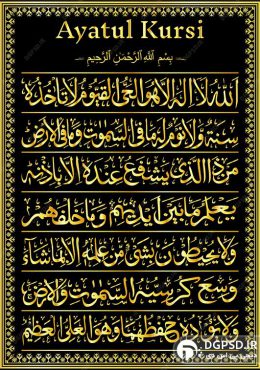 Ayatul Kursi
بِسْمِ اللّٰهِ الرَّحْمٰنِ الرَّحِيْمِ
اَللّٰهُ لَا اِلٰهَ اِلَّا هُوَ الْحَيُّ الْقَيُّوْمُ لَا تَأْخُذُهٗ
سِنَةٌ وَّلَا نَوْمٌ لَهٗ مَا فِي السَّمٰوٰتِ وَمَا فِي الْاَرْضِ
مَنْ ذَا الَّذِيْ يَشْفَعُ عِنْدَهٗ اِلَّا بِاِذْنِهٖ
يَعْلَمُ مَا بَيْنَ اَيْدِيْهِمْ وَمَا خَلْفَهُمْ
وَلَا يُحِيْطُوْنَ بِشَيْءٍ مِّنْ عِلْمِهٖ اِلَّا بِمَا شَاءَ
وَسِعَ كُرْسِيُّهُ السَّمٰوٰتِ وَالْاَرْضَ
وَلَا يَئُوْدُهٗ حِفْظُهُمَا وَهُوَ الْعَلِيُّ الْعَظِيْمُ
.DGPSD.IR